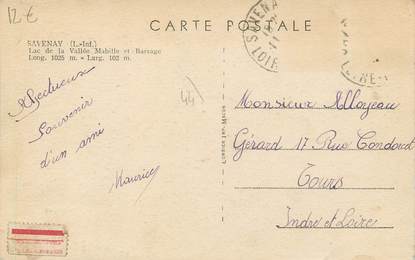 12€
CARTE POSTALE
SAVENAY (L.-Inf.)
Lac de la Vallée Mabille et Barrage
Long. 1025 m. - Larg. 102 m.
SAVENAY
LOIRE
44)
Affectueux
Souvenir
d'un ami
Maurice
Monsieur Alloyeau
Gérard 17 Rue Condorcet
Tours
Indre et Loire